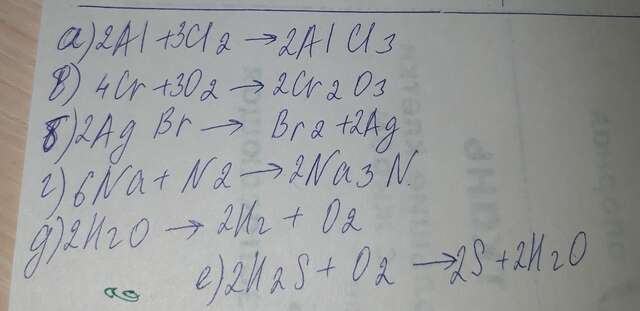 а) 2Al + 3Cl2 → 2AlCl3
в) 4Cr + 3O2 → 2Cr2O3
б) 2AgBr → Br2 + 2Ag
г) 6Na + N2 → 2Na3N
д) 2H2O → 2H2 + O2
е) 2H2S + O2 → 2S + 2H2O